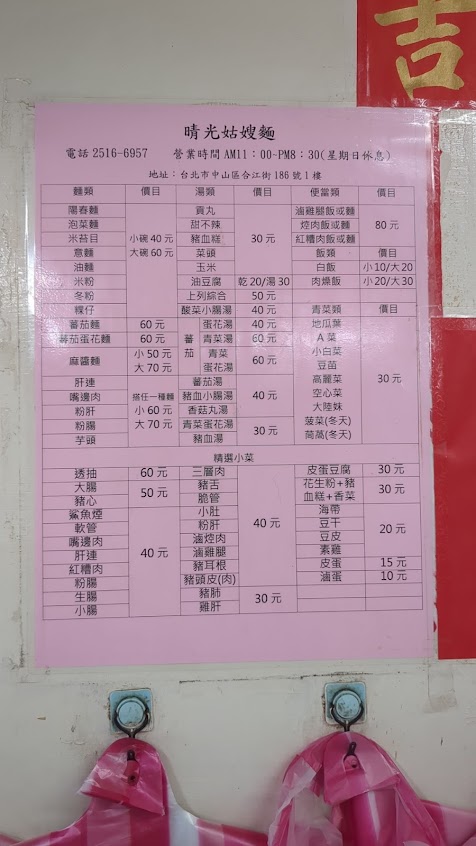 吉
晴光姑嫂麵
電話 2516-6957 營業時間 AM11：00~PM8：30(星期日休息)
地址：台北市中山區合江街 186 號 1 樓
麵類 價目 湯類 價目 便當類 價目
陽春麵 貢丸 滷雞腿飯或麵
泡菜麵 甜不辣 焢肉飯或麵 80 元
米苔目 小碗 40 元 豬血糕 30 元 紅糟肉飯或麵
意麵 大碗 60 元 菜頭 飯類 價目
油麵 玉米 白飯 小 10/大 20
米粉 油豆腐 乾 20/湯 30 肉燥飯 小 20/大 30
冬粉 上列綜合 50 元
粿仔 酸菜小腸湯 40 元 青菜類 價目
蕃茄麵 60 元 蕃茄 蛋花湯 40 元 地瓜葉
蕃茄蛋花麵 60 元 青菜湯 60 元 A 菜
麻醬麵 小 50 元 青菜 60 元 小白菜
大 70 元 蛋花湯 豆苗
肝連 蕃茄湯 高麗菜 30 元
嘴邊肉 搭任一種麵 豬血小腸湯 40 元 空心菜
粉肝 小 60 元 香菇丸湯 大陸妹
粉腸 大 70 元 青菜蛋花湯 30 元 菠菜(冬天)
芋頭 豬血湯 茼蒿(冬天)
精選小菜
透抽 60 元 三層肉 皮蛋豆腐 30 元
大腸 50 元 豬舌 花生粉+豬 30 元
豬心 脆管 血糕+香菜
鯊魚煙 小肚 40 元 海帶
軟管 粉肝 豆干 20 元
嘴邊肉 滷焢肉 豆皮
肝連 40 元 滷雞腿 素雞
紅糟肉 豬耳根 皮蛋 15 元
粉腸 豬頭皮(肉) 滷蛋 10 元
生腸 豬肺 30 元
小腸 雞肝